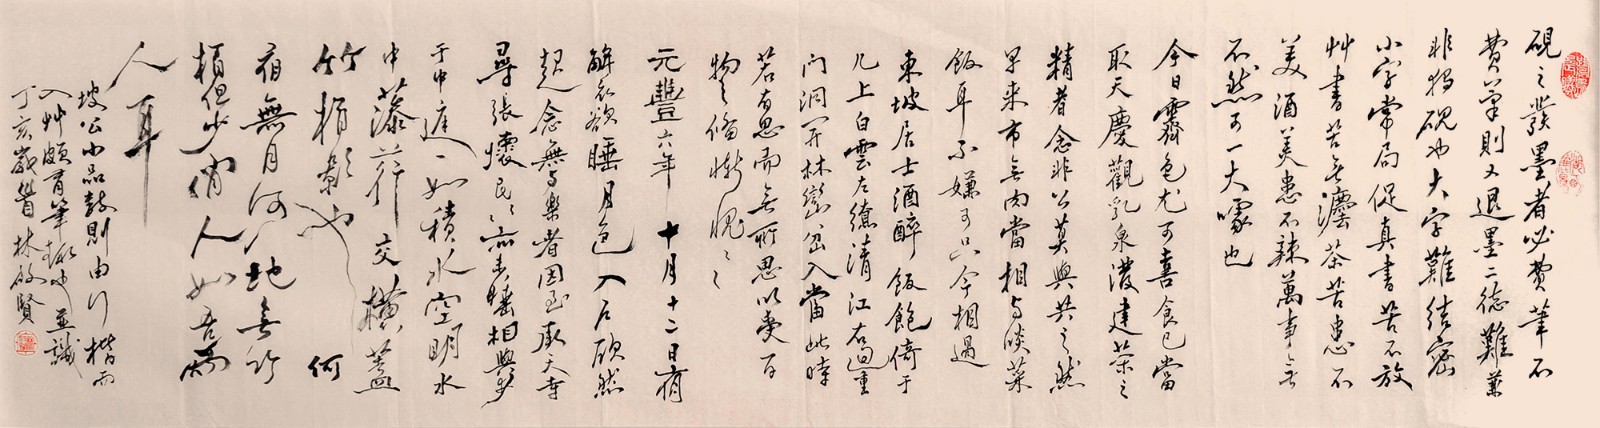 硯之發墨者必費筆不
費筆則又退墨二德難兼
非獨硯也大字難結密
小字常局促真書苦不放
艸書苦無灋茶苦患不
美酒美患不辣萬事無
不然可一大噱也
今日霽色尤可喜食已當
取天慶觀乳泉潑建茶之
精者念非公莫與共之然
早来市無肉當相與啖菜
飯耳不嫌可只今相過
東坡居士酒醉飯飽倚于
几上白雲左繚清江右洄重
門洞開林巒坌入當此時
若有思而無所思以受万
物之備慚愧〻
元豐六年十月十二日夜
解衣欲睡月色入户欣然
起念無與樂者因至承天寺
尋張懷民〻亦未寢相與步
于中庭〻如積水空明水
中藻荇交橫蓋
竹柏影也何
夜無月何地無竹
柏但少閒人如吾兩
人耳
坡公小品數則由行楷而
入艸頗有筆也並識
丁亥歲 林啟賢